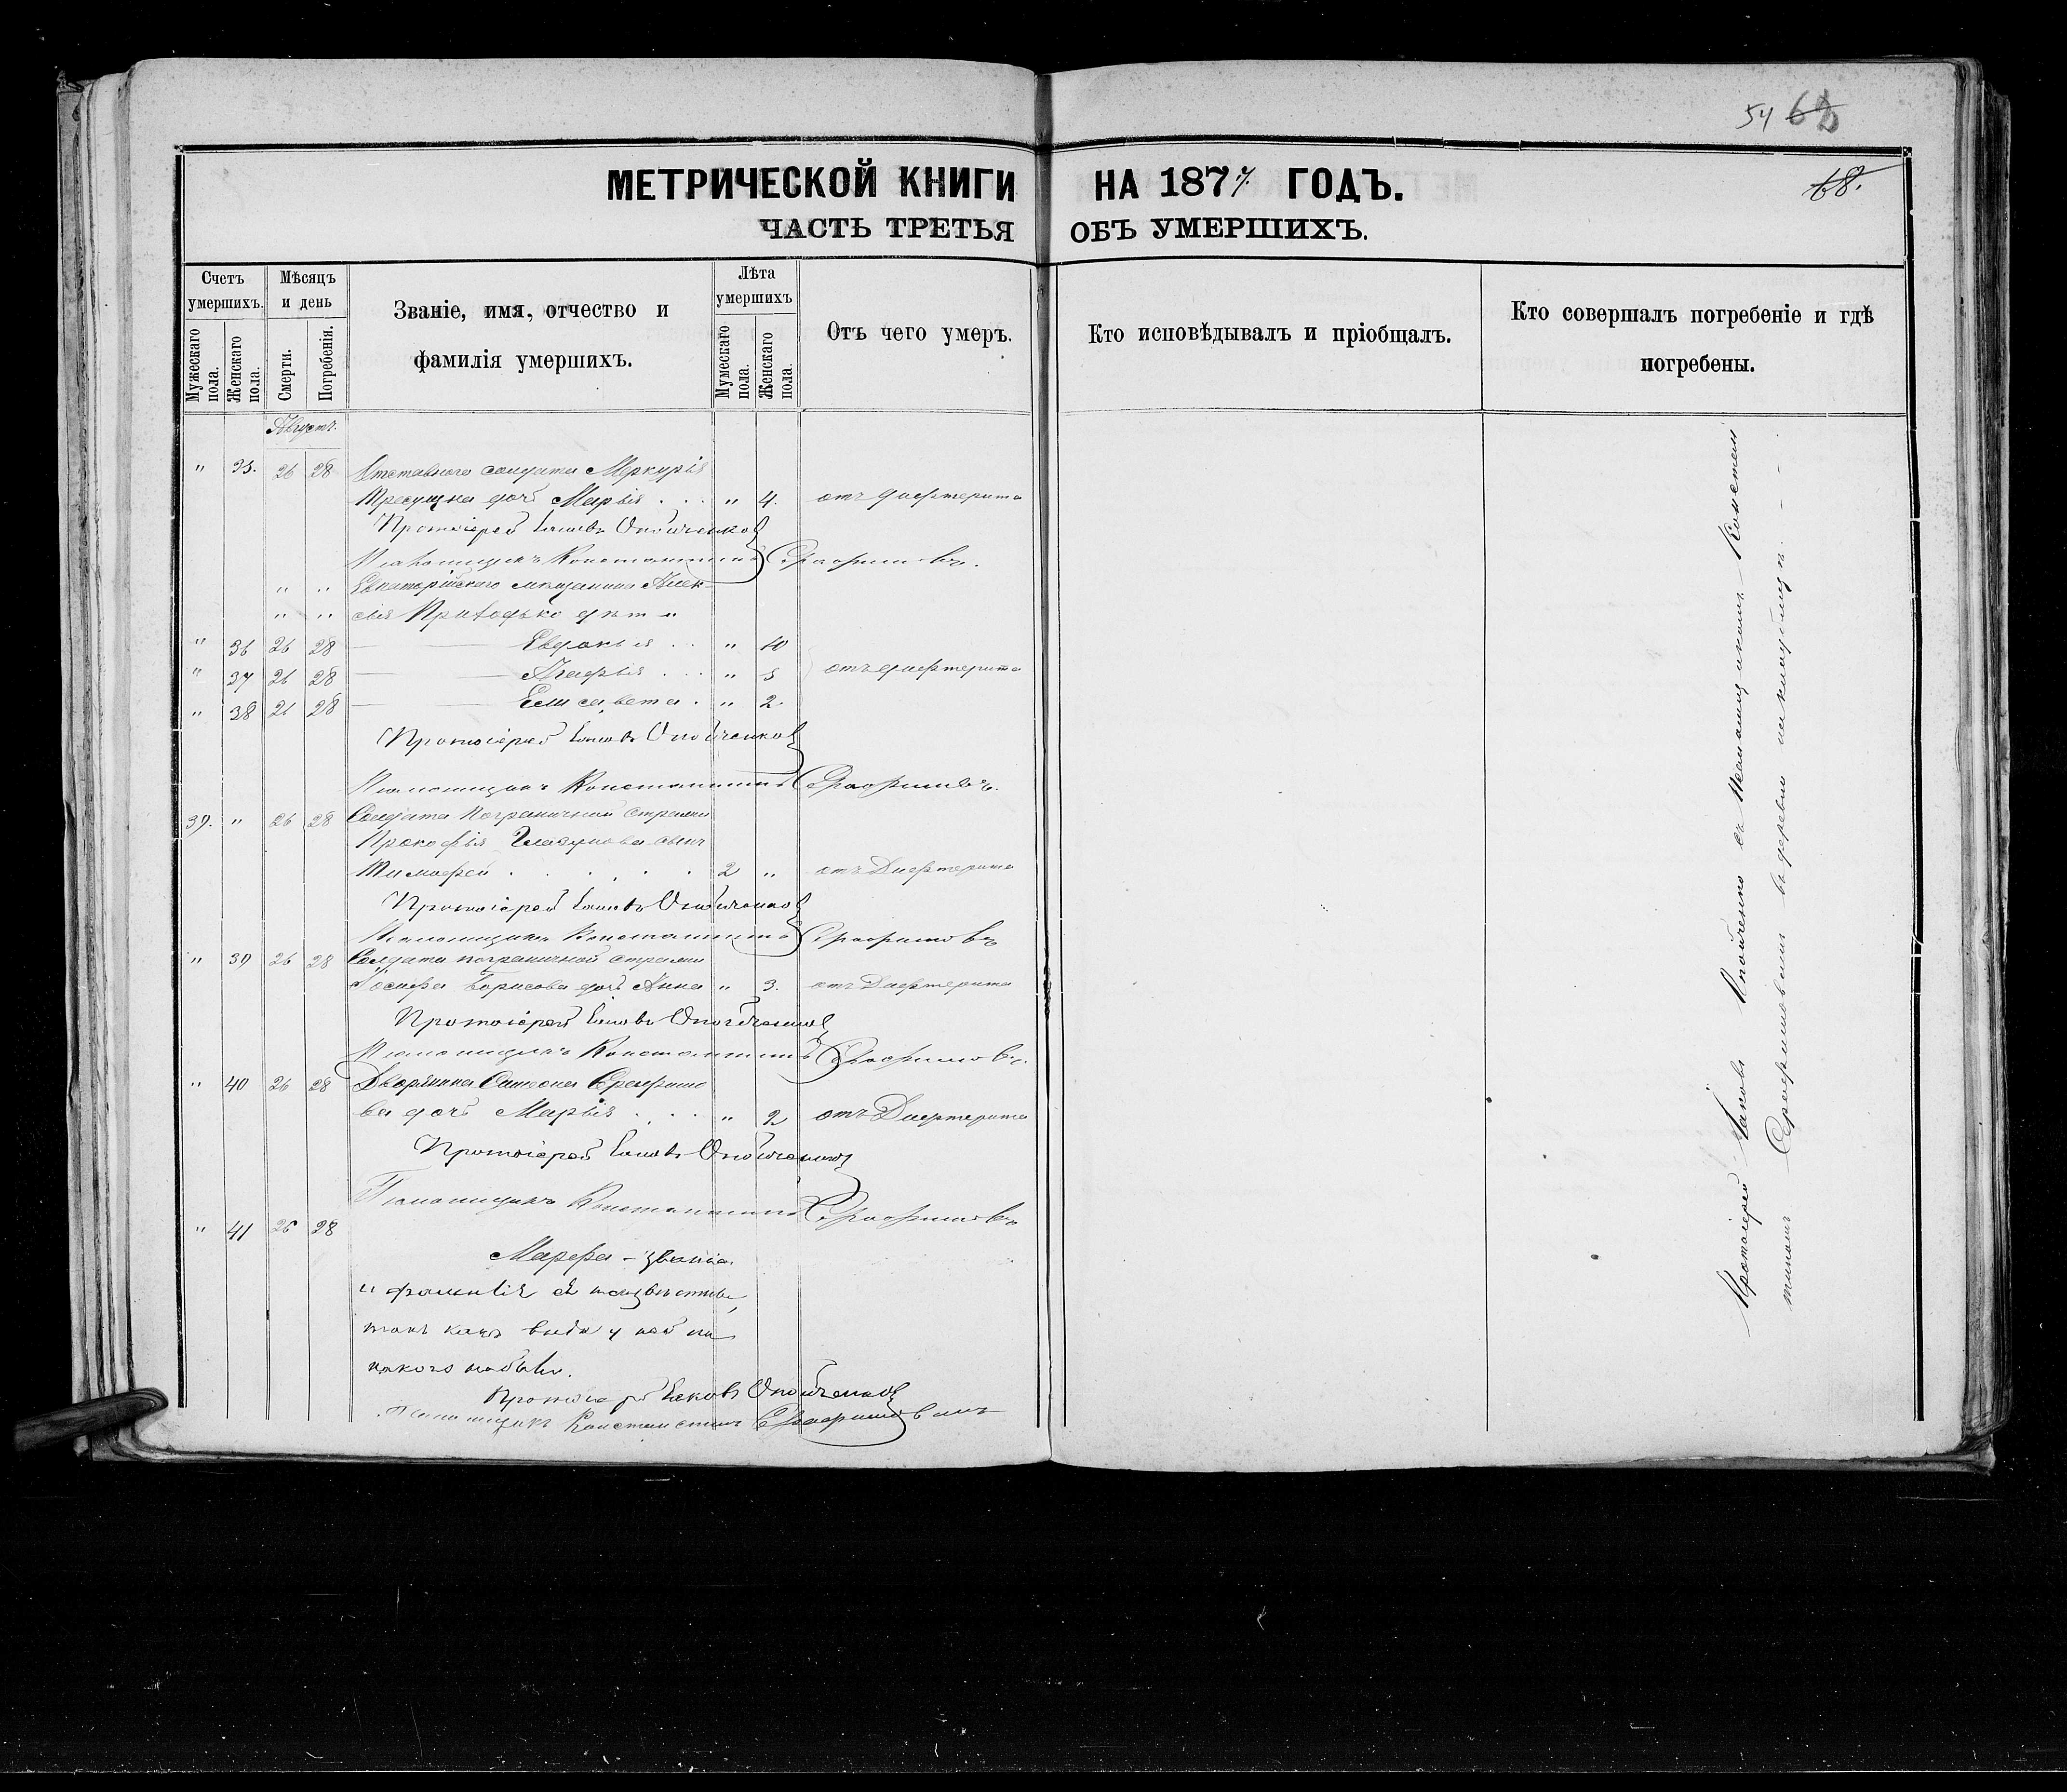 54 62
68.
МЕТРИЧЕСКОЙ КНИГИ НА 1877 ГОДЪ.
ЧАСТЬ ТРЕТЬЯ ОБЪ УМЕРШИХЪ.
Счетъ умершихъ.
Мужескаго пола.
Женскаго пола.
Мѣсяцъ и день
Смерти.
Погребенія.
Званіе, имя, отчество и фамилія умершихъ.
Лѣта умершихъ
Мужескаго пола.
Женскаго пола.
Отъ чего умеръ.
Кто исповѣдывалъ и пріобщалъ.
Кто совершалъ погребеніе и гдѣ погребены.
Августъ.
" 35. 26 28 Отставного солдата Меркурія
дочь Марія . . . " 4. отъ дифтерита
Протоіерей Іаковъ Опойченко
Константинъ Серафимовъ.
" " Евпаторійскаго мѣщанина Алек-
" " сія Приходько дѣти
" 36 26 28 Евдокія . . " 10
" 37 26 28 Агафія . . . " 5 отъ дифтерита
" 38 26 28 Елисавета . " 2
Протоіерей Іаковъ Опойченко
Пономарь Константинъ Серафимовъ.
39. " 26 28 Солдата пограничной стражи
Прокофія сынъ
Тимофей . . . . . . 2 " отъ Дифтерита
Протоіерей Іаковъ Опойченко
Константинъ Серафимовъ
" 39 26 28 Солдата пограничной стражи
Іосифа Борисова дочь Анна " 3. отъ Дифтерита
Протоіерей Іаковъ Опойченко
Константинъ Серафимовъ.
" 40 26 28 Дворянина Симеона Серафимо
ва дочь Марія . . . " 2 отъ Дифтерита
Протоіерей Іаковъ Опойченко
Константинъ Серафимовъ
" 41 26 28
Марфа - званіе
и фамилія неизвѣстны,
такъ какъ вида у ней ни
какого небыло.
Протоіерей Іаковъ Опойченко
Константинъ Серафимовъ
Протоіерей Іаковъ Опойченко съ Псаломщикомъ Констан
тиномъ Серафимовымъ въ деревнѣ на кладбищѣ. - -